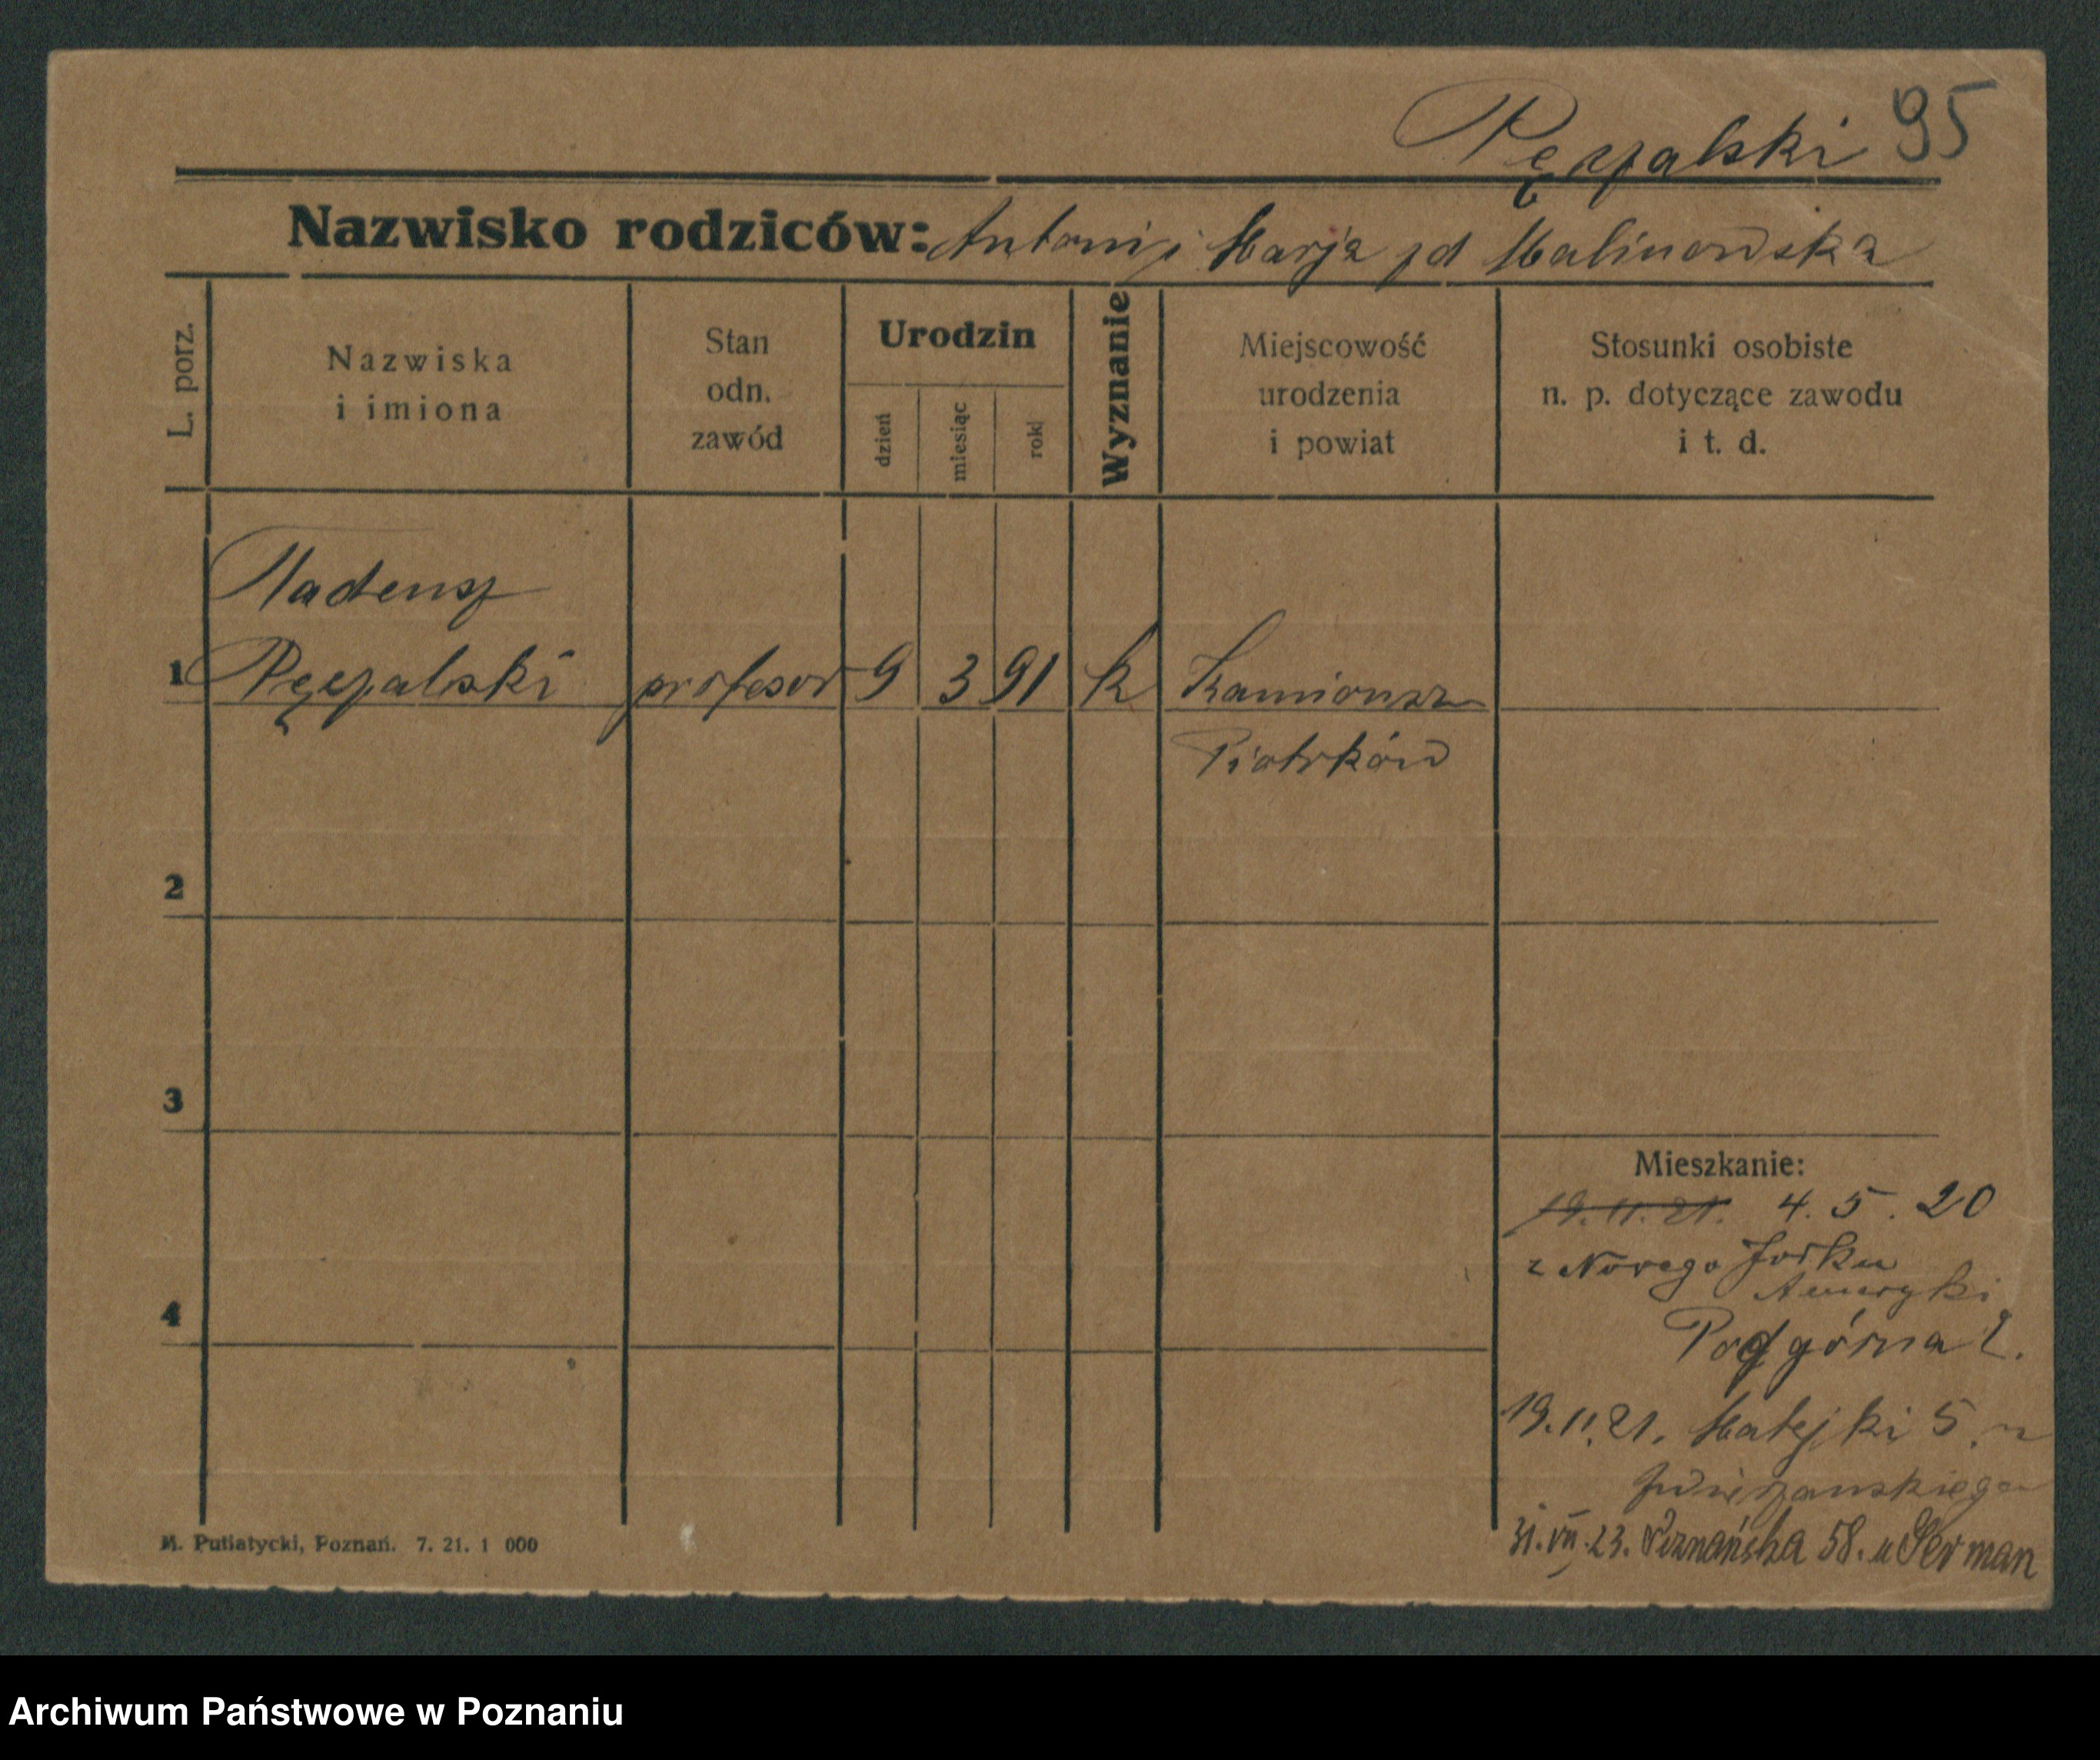 Pęczalski 95
Nazwisko rodziców: Antoni i Marja zd Malinowska
L. porz.
Nazwiska
i imiona
Stan
odn.
zawód
Urodzin
dzień
miesiąc
rok
Wyznanie
Miejscowość
urodzenia
i powiat
Stosunki osobiste
n. p. dotyczące zawodu
i t. d.
Tadeusz
1 Pęczalski profesor 9 3 91 k
Piotrków
2
3
4
Mieszkanie:
19.11.21. 4. 5. 20
z Nowego Jorku
Ameryki
Podgórna 2.
19.11.21. Matejki 5.
31.VII.23. Poznańska 58. u German
M. Putiatycki, Poznań. 7. 21. 1 000
Archiwum Państwowe w Poznaniu